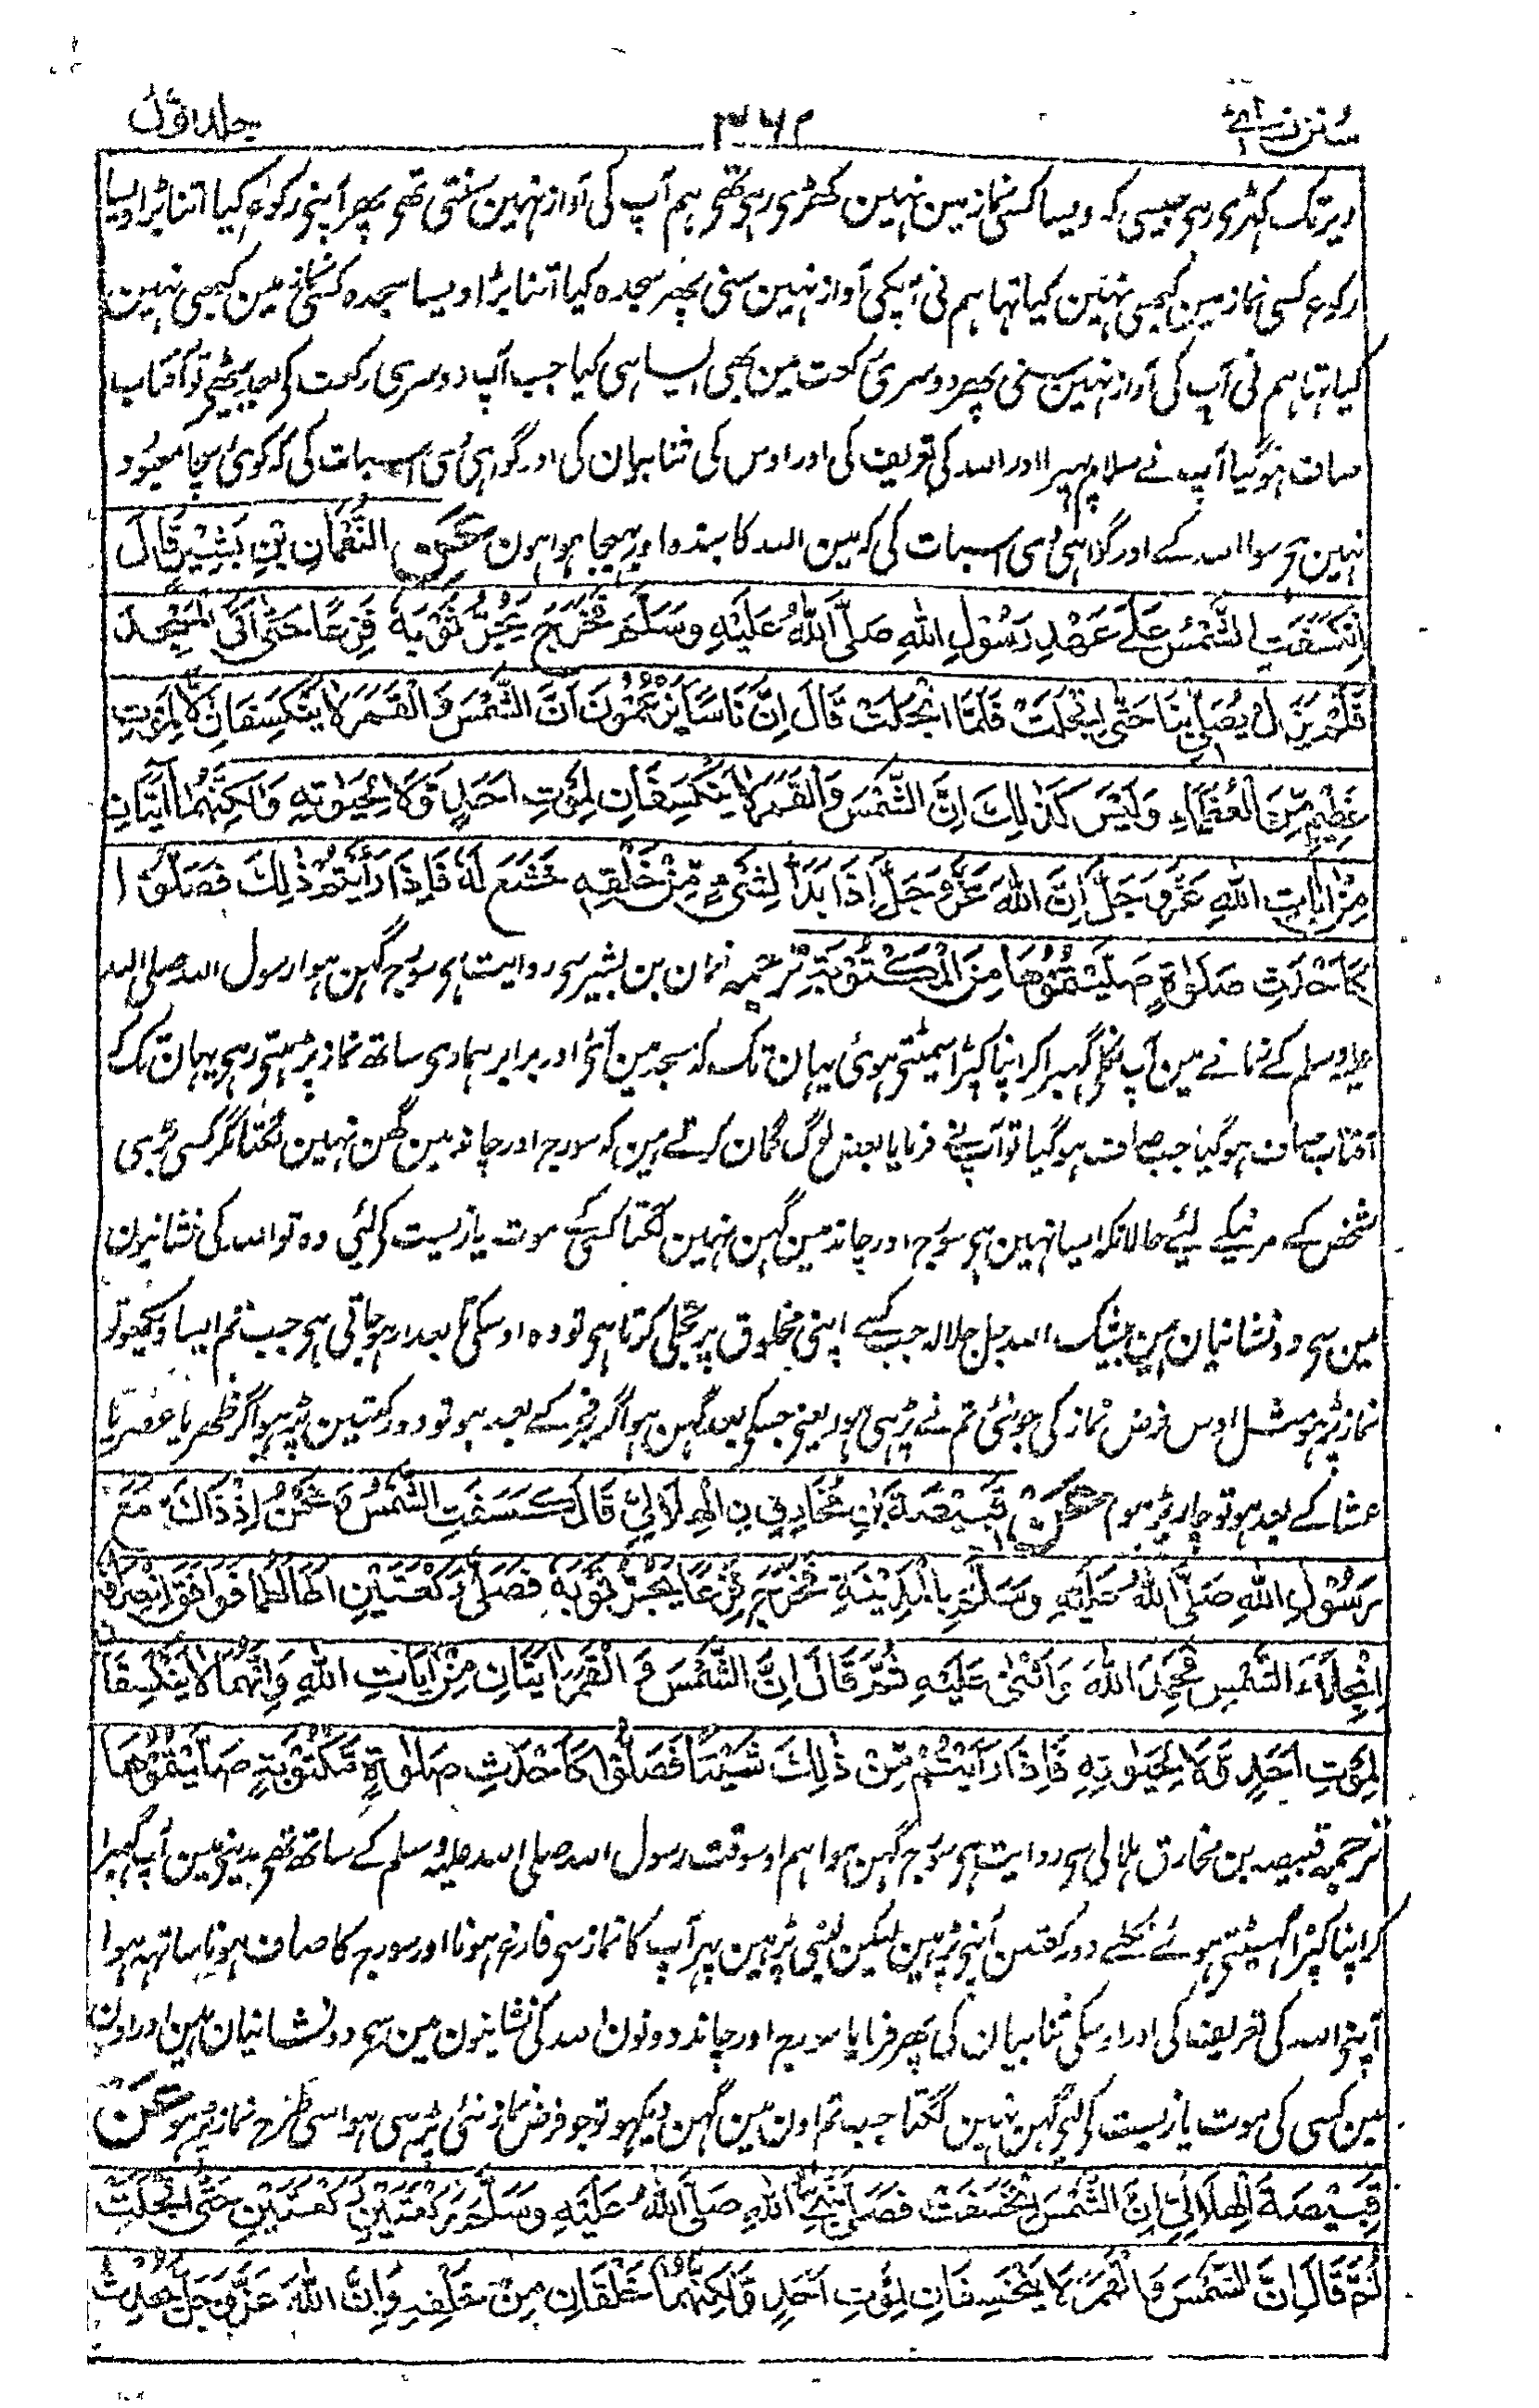 سنن نسائی ۳۶۲ جلد اوّل
دیر تک کہڑی رہی جیسی کہ ویسا کسی نماز مین نہین کھڑی رہی تھی ہم آپ کی آواز نہین سنتی تھی پھر آپنی رکوع کیا اتنا بڑا ویسا
رکوع کسی نماز مین کبھی نہین کیا تہا ہم نی آپکی آواز نہین سنی پھر سجدہ کیا اتنا بڑا ویسا سجدہ کسی نماز مین کبھی نہین
کیا تہا ہم نی آپ کی آواز نہین سنی پھر دوسری رکعت مین بھی ایسا ہی کیا جب آپ دوسری رکعت کی بعد بیٹھی تو آفتاب
صاف ہوگیا آپ نے سلام پہیرا اور اللہ کی تعریف کی اور اوس کی ثنا بیان کی اور گواہی دی اسبات کی کہ کوئی سچا معبود
نہین ہی سوا اللہ کے اور گواہی دی اسبات کی کہ مین اللہ کا بندہ اور بہیجا ہوا ہون عَنِ النُّعْمَانِ بْنِ بَشِيْرٍ قَالَ
اِنْكَسَفَتِ الشَّمْسُ عَلٰى عَهْدِ رَسُوْلِ اللهِ صَلَّى اللهُ عَلَيْهِ وَسَلَّمَ فَخَرَجَ يَجُرُّ ثَوْبَهٗ فَزِعًا حَتّٰى اَتَى الْمَسْجِدَ
فَلَمْ يَزَلْ يُصَلِّيْ بِنَا حَتَّى انْجَلَتْ فَلَمَّا انْجَلَتْ قَالَ اِنَّ نَاسًا يَزْعُمُوْنَ اَنَّ الشَّمْسَ وَالْقَمَرَ لَا يَنْكَسِفَانِ اِلَّا لِمَوْتِ
عَظِيْمٍ مِّنَ الْعُظَمَاءِ وَلَيْسَ كَذٰلِكَ اِنَّ الشَّمْسَ وَالْقَمَرَ لَا يَنْكَسِفَانِ لِمَوْتِ اَحَدٍ وَّلَا لِحَيٰوتِهٖ وَلٰكِنَّهُمَا اٰيَتَانِ
مِنْ اٰيَاتِ اللهِ عَزَّ وَجَلَّ اِنَّ اللهَ عَزَّ وَجَلَّ اِذَا بَدَاَ لِشَيْءٍ مِّنْ خَلْقِهٖ خَشَعَ لَهٗ فَاِذَا رَاَيْتُمْ ذٰلِكَ فَصَلُّوْا
كَاَحْدَثِ صَلٰوةٍ صَلَّيْتُمُوْهَا مِنَ الْمَكْتُوْبَةِ ترجمہ نعمان بن بشیر سی روایت ہی سورج گہن ہوا رسول اللہ صلی اللہ
علیہ وسلم کے زمانے مین آپ نکلی گہبرا کر اپنا کپڑا سمیٹتی ہوئی یہان تک کہ مسجد مین آئی اور برابر ہماری ساتھ نماز پڑہتی رہی یہان تک کہ
آفتاب صاف ہوگیا جب صاف ہوگیا تو آپنے فرمایا بعض لوگ گمان کرتے ہین کہ سورج اور چاند مین گھن نہین لگتا مگر کسی بڑی
شخص کے مرنیکے لیئے حالانکہ ایسا نہین ہی سورج اور چاند مین گہن نہین لگتا کسیکے موت یا زیست کی لئی وہ تو اللہ کی نشانیون
مین سی دو نشانیان ہین بیشک اللہ جل جلالہ جب کسی اپنی مخلوق پر تجلی کرتا ہی تو وہ اوسکی تابعدار ہوجاتی ہی جب تم ایسا دیکھو تو
نماز پڑہو مثل اوس فرض نماز کی جو نئی تم نے پڑہی ہو یعنی جسکی بعد گہن ہو اگر فجر کے بعد ہو تو دو رکعتین پڑہو اگر ظہر یا عصر یا
عشا کے بعد ہو تو چار پڑہو عَنْ قَبِيْصَةَ بْنِ مُخَارِقِ نِ الْهِلَالِيِّ قَالَ كَسَفَتِ الشَّمْسُ وَنَحْنُ اِذْ ذَاكَ مَعَ
رَسُوْلِ اللهِ صَلَّى اللهُ عَلَيْهِ وَسَلَّمَ بِالْمَدِيْنَةِ فَخَرَجَ فَزِعًا يَجُرُّ ثَوْبَهٗ فَصَلّٰى رَكْعَتَيْنِ اَطَالَهُمَا فَوَافَقَ انْصِرَافُهُ
انْجِلَاءَ الشَّمْسِ فَحَمِدَ اللهَ وَاَثْنٰى عَلَيْهِ ثُمَّ قَالَ اِنَّ الشَّمْسَ وَالْقَمَرَ اٰيَتَانِ مِنْ اٰيَاتِ اللهِ وَاِنَّهُمَا لَا يَنْكَسِفَانِ
لِمَوْتِ اَحَدٍ وَّلَا لِحَيٰوتِهٖ فَاِذَا رَاَيْتُمْ مِّنْ ذٰلِكَ شَيْئًا فَصَلُّوْا كَاَحْدَثِ صَلٰوةٍ مَّكْتُوْبَةٍ صَلَّيْتُمُوْهَا
ترجمہ قبیصہ بن مخارق ہلالی سی روایت ہی سورج گہن ہوا ہم اوسوقت رسول اللہ صلی اللہ علیہ وسلم کے ساتھ تھی مدینی مین آپ گہبرا
کر اپنا کپڑا گہسیٹتی ہوئے نکلے دو رکعتین آپنی پڑہین لیکن لنبی پڑہین پہر آپ کا نماز سی فارغ ہونا اور سورج کا صاف ہونا ساتہہ ہوا
آپنی اللہ کی تعریف کی اور اوسکی ثنا بیان کی پھر فرمایا سورج اور چاند دونون اللہ کی نشانیون مین سی دو نشانیان ہین اور اون
مین کسی کی موت یا زیست کی لئی گہن نہین لگتا جب تم اون مین گہن دیکہو تو جو فرض نماز نئی پڑہی ہو اسی طرح نماز پڑہو عَنْ
قَبِيْصَةَ الْهِلَالِيِّ اِنَّ الشَّمْسَ انْخَسَفَتْ فَصَلّٰى نَبِيُّ اللهِ صَلَّى اللهُ عَلَيْهِ وَسَلَّمَ رَكْعَتَيْنِ رَكْعَتَيْنِ حَتَّى انْجَلَتْ
ثُمَّ قَالَ اِنَّ الشَّمْسَ وَالْقَمَرَ لَا يَنْخَسِفَانِ لِمَوْتِ اَحَدٍ وَّلٰكِنَّهُمَا خَلْقَانِ مِنْ خَلْقِهٖ وَاِنَّ اللهَ عَزَّ وَجَلَّ يُحْدِثُ